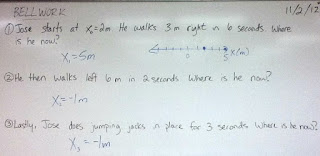 BELLWORK 11/2/12
① Jose starts at X₀=2m He walks 3m right in 6 seconds where
is he now?
X₁=5m
0 5 X(m)
② He then walks left 6m in 2 seconds Where is he now?
X₂=-1m
③ Lastly, Jose does jumping jacks in place for 3 seconds Where is he now?
X₃=-1m